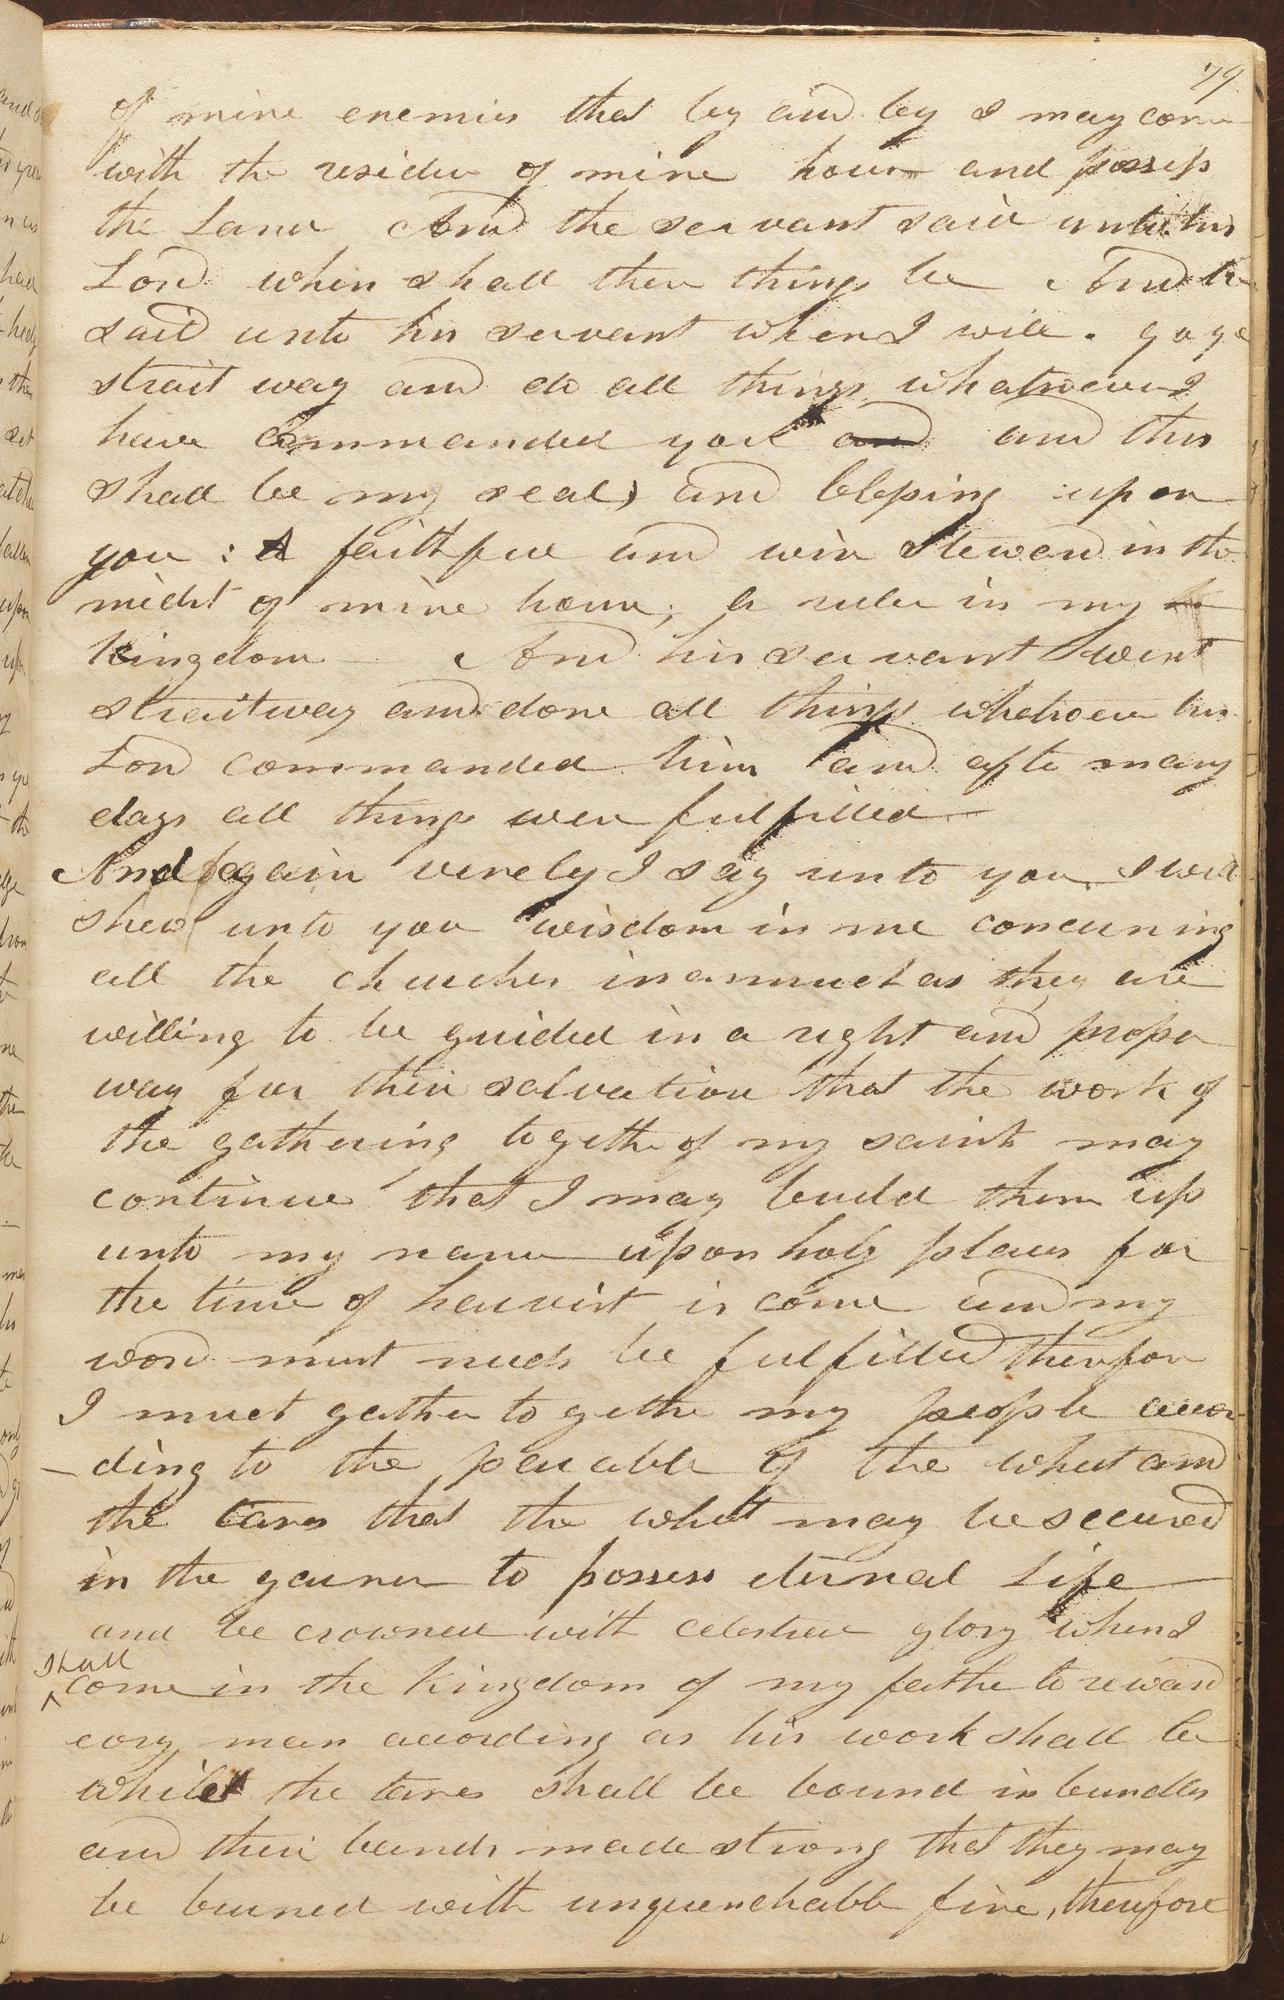 79
of mine enemies that by and by I may come
with the residue of mine house and possess
the Land And the servant said unto his
Lord when shall these things be And he
said unto his servant when I will. go ye
strait way and do all things whatsoever I
have commanded you and and this
shall be my seal, and blessing upon
you : A faithful and wise Steward in the
midst of mine house, a ruler in my
Kingdom And his servant went
straitway and done all things whatsoever his
Lord commanded him and after many
days all things were fulfilled
And again verely I say unto you I will
shew unto you wisdom in me concerning
all the churches inasmuch as they are
willing to be guided in a right and proper
way for their salvation that the work of
the gathering together of my saints may
continue that I may build them up
unto my name upon holy places for
the time of hearvist is come and my
word must needs be fulfilled therefore
I must gather together my people accor
-ding to the parable of the wheat and
the tares that the wheat may be secured
in the garner to possess eternal Life
and be crowned with celestial glory when I
shall
come in the kingdom of my father to reward
every man according as his work shall be
whilst the tares shall be bound in bundles
and their bands made strong that they may
be burned with unquenchable fire, therefore